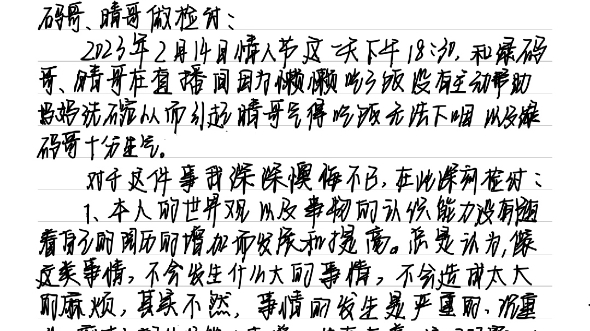 码哥、晴哥做检讨:
2023年2月14日情人节这一天下午18:30,和绿码
哥、晴哥在直播间因为懒懒吃了饭没有主动帮助
妈妈洗碗从而引起晴哥气得吃饭无法下咽以及绿
码哥十分生气。
对于这件事我深深懊悔不已,在此深刻检讨:
1、本人的世界观以及事物的认识能力没有随
着自己的阅历的增加而发展和提高。总是认为,像
这类事情,不会发生什么大的事情,不会造成太大
的麻烦,其实不然,事情的发生是严重的、沉重